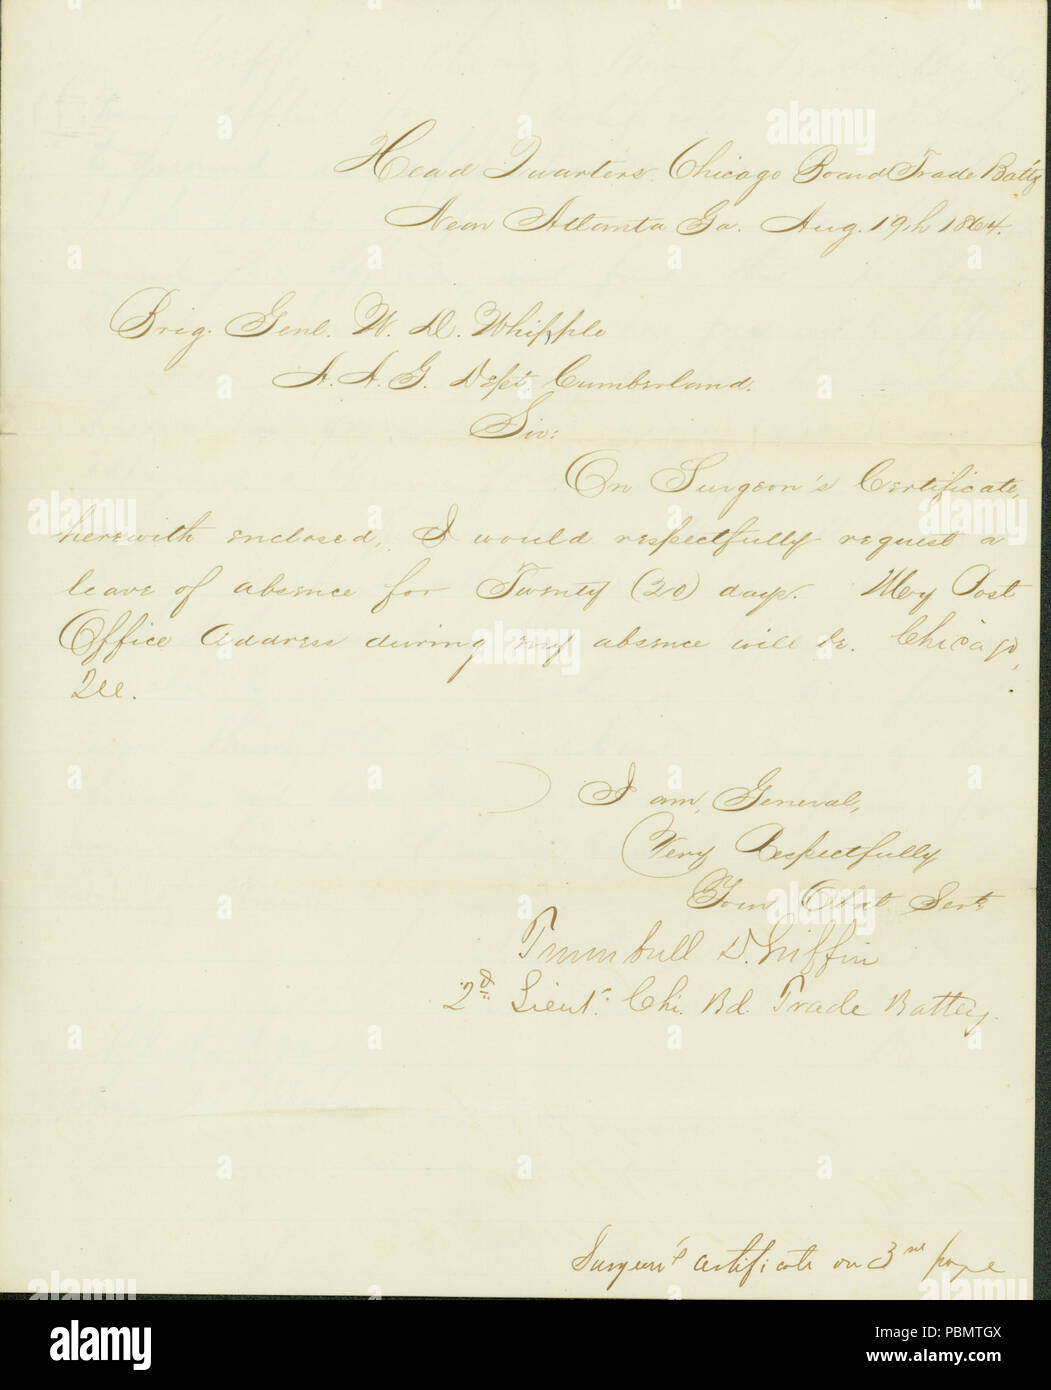 Head Quarters. Chicago Board Trade Batt'y
Near Atlanta Ga. Aug. 19th 1864.
Brig. Genl. W. D. Whipple
A. A. G. Dept. Cumberland.
Sir:
On Surgeon's Certificate,
herewith enclosed, I would respectfully request a
leave of absence for Twenty (20) days. My Post
Office Address during my absence will be. Chicago,
Ill.
I am, General,
Very Respectfully
Your Obdt Servt
Trumbull D. Griffin
2d. Lieut. Chi. Bd. Trade Battery.
Surgeon's certificate on 3rd page
alamy
Image ID: PBMTGX
www.alamy.com